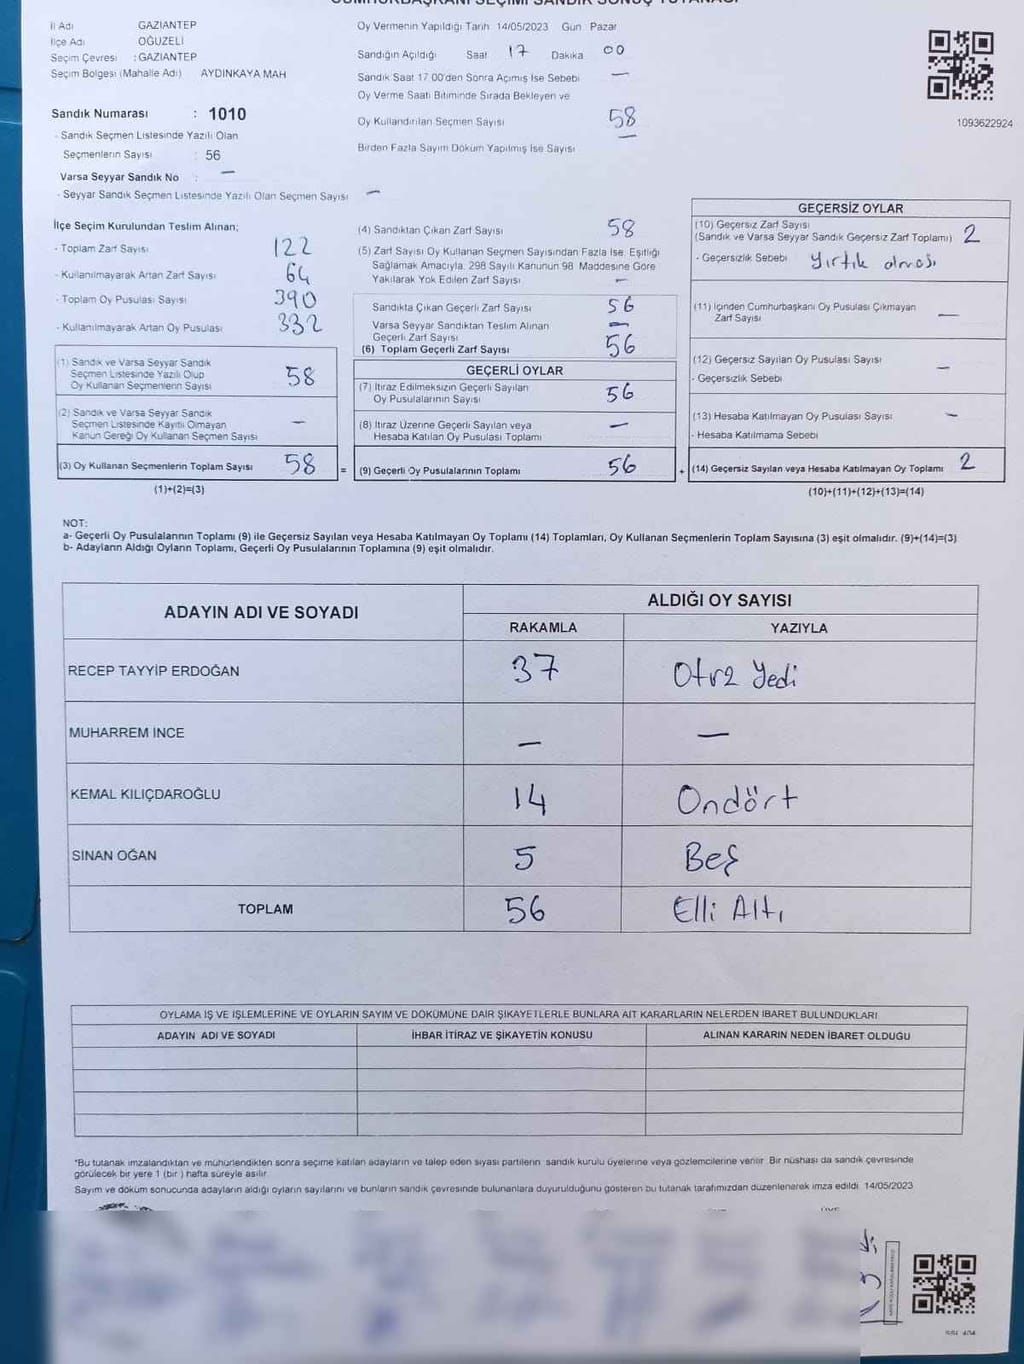 CUMHURBAŞKANI SEÇİMİ SANDIK SONUÇ TUTANAĞI
İl Adı GAZİANTEP
İlçe Adı OĞUZELİ
Seçim Çevresi : GAZİANTEP
Seçim Bölgesi (Mahalle Adı) AYDINKAYA MAH
Oy Vermenin Yapıldığı Tarih 14/05/2023 Gün : Pazar
Sandığın Açıldığı Saat 17 Dakika 00
Sandık Saat 17 00'den Sonra Açımış İse Sebebi —
Oy Verme Saati Bitiminde Sırada Bekleyen ve
Oy Kullandırılan Seçmen Sayısı 58
Birden Fazla Sayım Döküm Yapılmış İse Sayısı —
1093622924
Sandık Numarası : 1010
- Sandık Seçmen Listesinde Yazılı Olan
Seçmenlerin Sayısı : 56
Varsa Seyyar Sandık No : —
- Seyyar Sandık Seçmen Listesinde Yazılı Olan Seçmen Sayısı —
İlçe Seçim Kurulundan Teslim Alınan;
- Toplam Zarf Sayısı 122
- Kullanılmayarak Artan Zarf Sayısı 64
- Toplam Oy Pusulası Sayısı 390
- Kullanılmayarak Artan Oy Pusulası 332
(1) Sandık ve Varsa Seyyar Sandık
Seçmen Listesinde Yazılı Olup
Oy Kullanan Seçmenlerin Sayısı 58
(2) Sandık ve Varsa Seyyar Sandık
Seçmen Listesinde Kayıtlı Olmayan
Kanun Gereği Oy Kullanan Seçmen Sayısı —
(3) Oy Kullanan Seçmenlerin Toplam Sayısı 58 =
(1)+(2)=(3)
(4) Sandıktan Çıkan Zarf Sayısı 58
(5) Zarf Sayısı Oy Kullanan Seçmen Sayısından Fazla İse, Eşitliği
Sağlamak Amacıyla, 298 Sayılı Kanunun 98 Maddesine Göre
Yakılarak Yok Edilen Zarf Sayısı —
Sandıkta Çıkan Geçerli Zarf Sayısı 56
Varsa Seyyar Sandıktan Teslim Alınan
Geçerli Zarf Sayısı —
(6) Toplam Geçerli Zarf Sayısı 56
GEÇERLİ OYLAR
(7) İtiraz Edilmeksizin Geçerli Sayılan
Oy Pusulalarının Sayısı 56
(8) İtiraz Üzerine Geçerli Sayılan veya
Hesaba Katılan Oy Pusulası Toplamı —
(9) Geçerli Oy Pusulalarının Toplamı 56 +
GEÇERSİZ OYLAR
(10) Geçersiz Zarf Sayısı
(Sandık ve Varsa Seyyar Sandık Geçersiz Zarf Toplamı) 2
- Geçersizlik Sebebi Yırtık olması
(11) İçinden Cumhurbaşkanı Oy Pusulası Çıkmayan
Zarf Sayısı —
(12) Geçersiz Sayılan Oy Pusulası Sayısı —
- Geçersizlik Sebebi
(13) Hesaba Katılmayan Oy Pusulası Sayısı —
- Hesaba Katılmama Sebebi
(14) Geçersiz Sayılan veya Hesaba Katılmayan Oy Toplamı 2
(10)+(11)+(12)+(13)=(14)
NOT:
a- Geçerli Oy Pusulalarının Toplamı (9) ile Geçersiz Sayılan veya Hesaba Katılmayan Oy Toplamı (14) Toplamları, Oy Kullanan Seçmenlerin Toplam Sayısına (3) eşit olmalıdır. (9)+(14)=(3)
b- Adayların Aldığı Oyların Toplamı, Geçerli Oy Pusulalarının Toplamına (9) eşit olmalıdır.
ADAYIN ADI VE SOYADI ALDIĞI OY SAYISI
RAKAMLA YAZIYLA
RECEP TAYYİP ERDOĞAN 37 Otuz Yedi
MUHARREM İNCE — —
KEMAL KILIÇDAROĞLU 14 Ondört
SİNAN OĞAN 5 Beş
TOPLAM 56 Elli Altı
OYLAMA İŞ VE İŞLEMLERİNE VE OYLARIN SAYIM VE DÖKÜMÜNE DAİR ŞİKAYETLERLE BUNLARA AİT KARARLARIN NELERDEN İBARET BULUNDUKLARI
ADAYIN ADI VE SOYADI İHBAR İTİRAZ VE ŞİKAYETİN KONUSU ALINAN KARARIN NEDEN İBARET OLDUĞU
*Bu tutanak imzalandıktan ve mühürlendikten sonra seçime katılan adayların ve talep eden siyasi partilerin sandık kurulu üyelerine veya gözlemcilerine verilir. Bir nüshası da sandık çevresinde
görülecek bir yere 1 (bir ) hafta süreyle asılır.
Sayım ve döküm sonucunda adayların aldığı oyların sayılarını ve bunların sandık çevresinde bulunanlara duyurulduğunu gösteren bu tutanak tarafımızdan düzenlenerek imza edildi. 14/05/2023